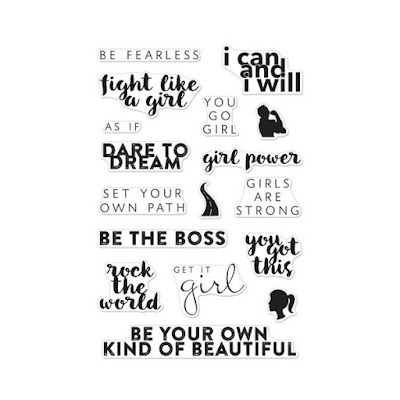 BE FEARLESS
i can
and
i will
fight like
a girl
YOU
GO
GIRL
AS IF
DARE TO
DREAM
girl power
SET YOUR
OWN PATH
GIRLS
ARE
STRONG
BE THE BOSS
you
got
this
rock
the
world
GET IT
girl
BE YOUR OWN
KIND OF BEAUTIFUL